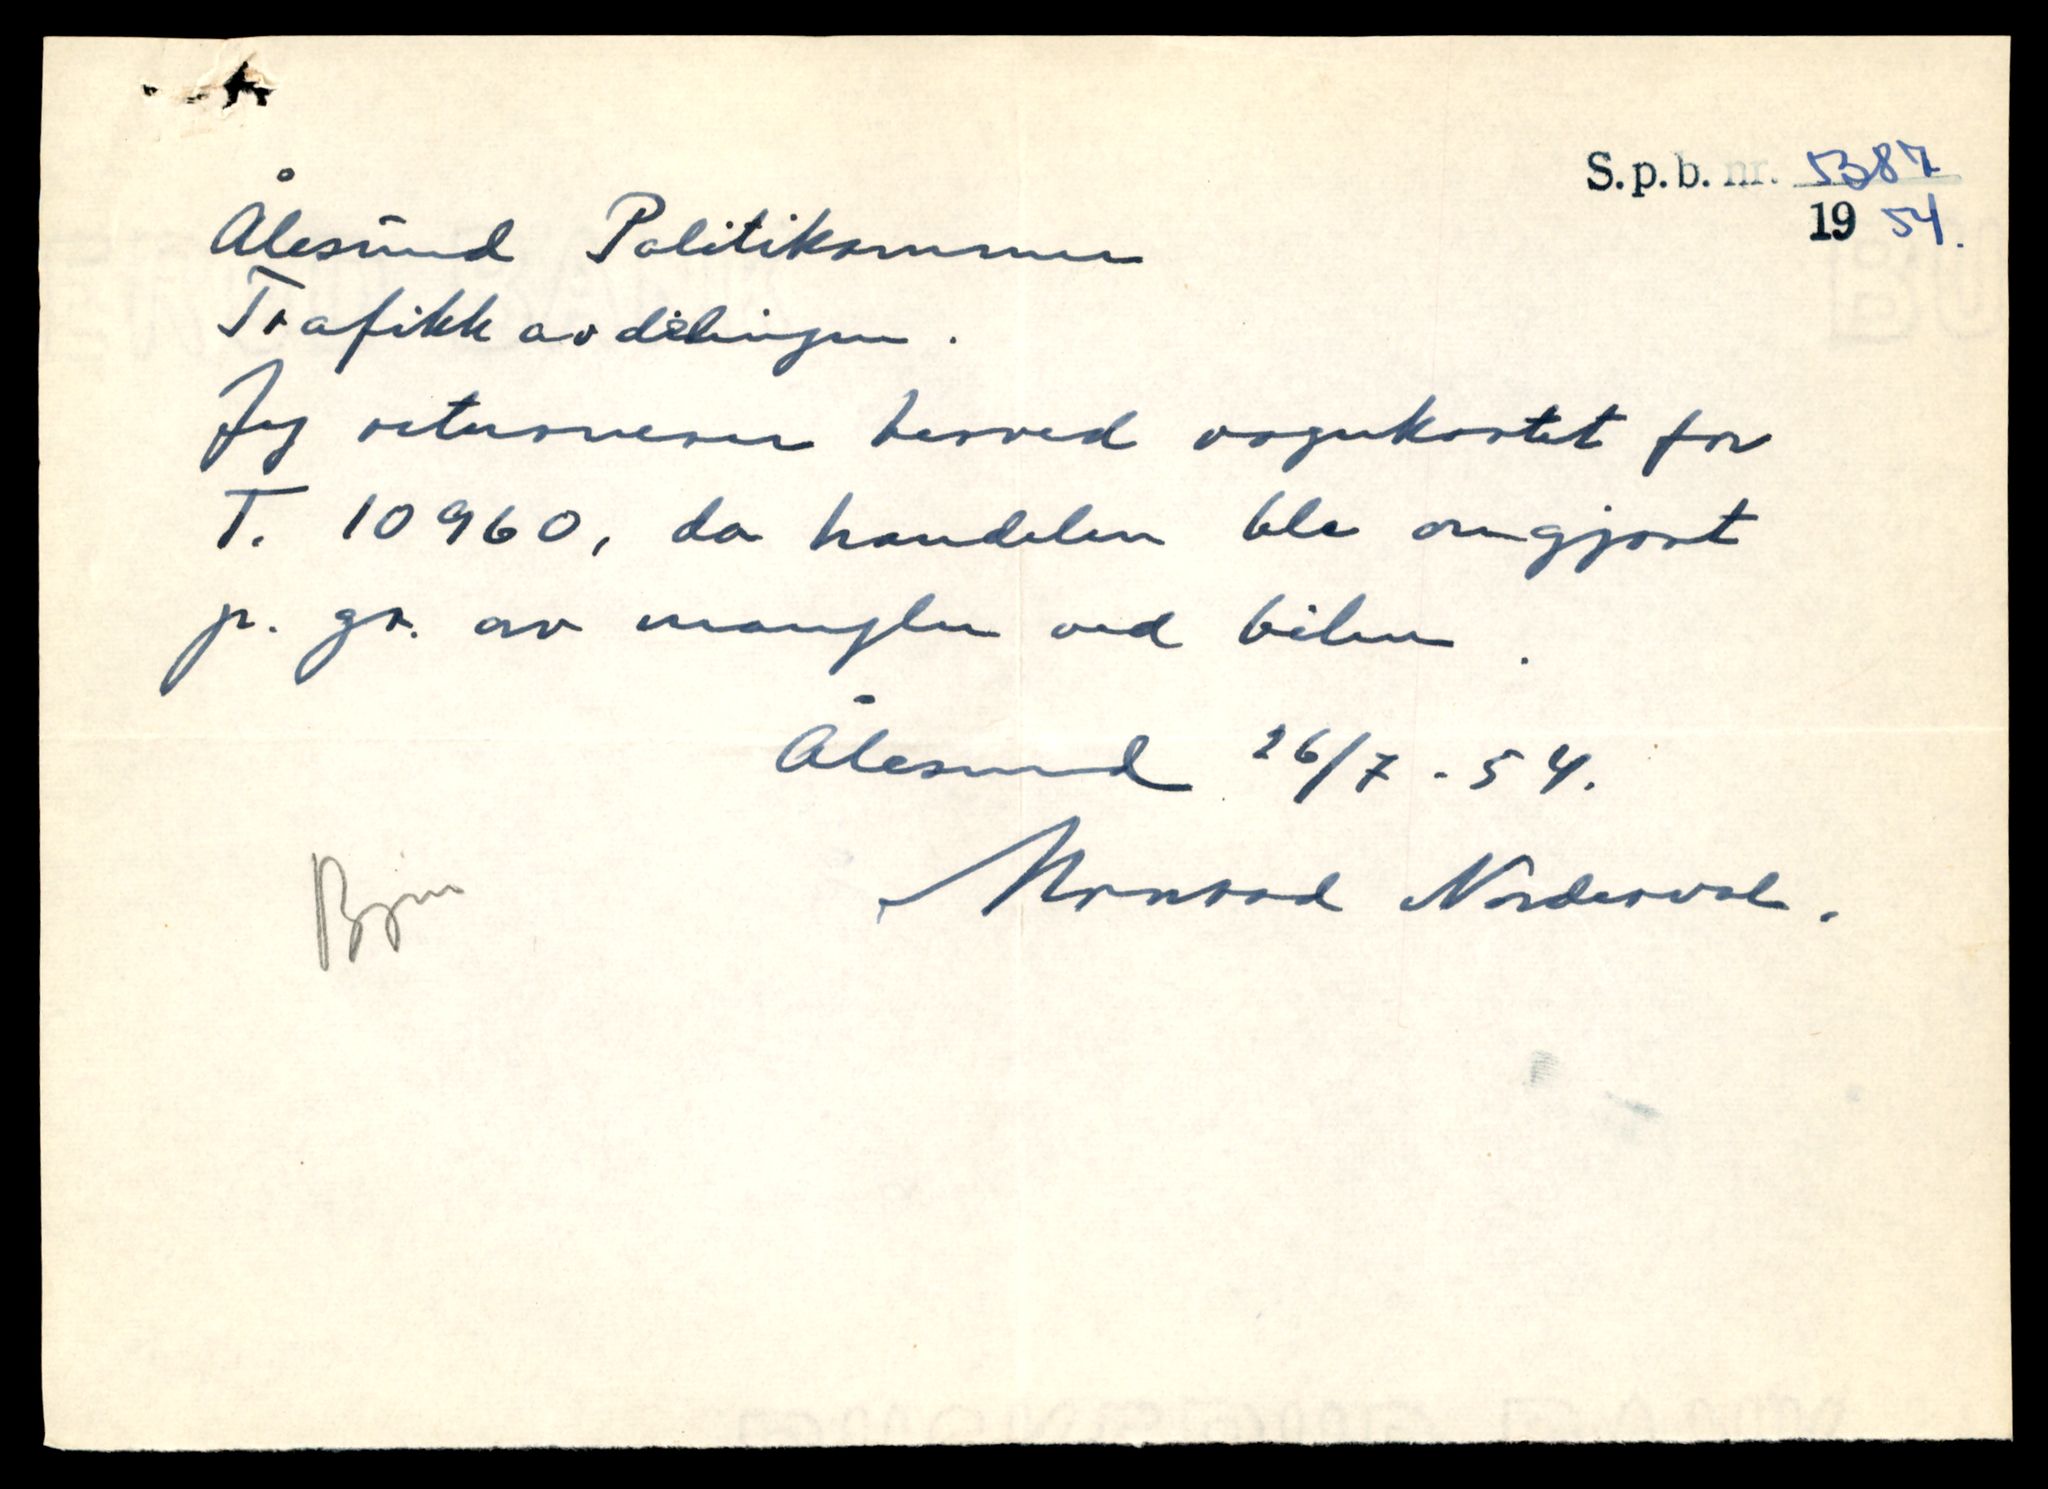 S.p.b. nr. 5387
19 54.
Ålesund Politikammer
Trafikkavdelingen.
Jeg returnerer herved vognkortet for
T. 10960, da handelen ble omgjort
p. gr. av mangler ved bilen.
Ålesund 26/7 - 54.
Norderval.